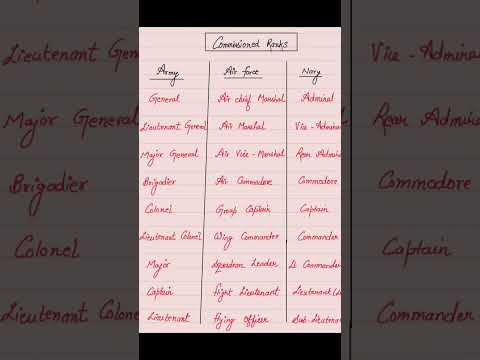 Lieutenant General
Major General
Brigadier
Colonel
Lieutenant Colone
Commissioned Ranks
Army Air force Navy
General Air chief Marshal Admiral
Lieutenant General Air Mashal Vice-Admira
Major General Air Vice-Marshal Rear Admira
Brigadier Air Commodore Commodore
Colonel Group Captain Captain
Lieutenant Colonel Wing Commander Commander
Major Squadron Leader Lt Commander
Captain flight Lieutenant Lieutenant
Lieutenant flying Officer Sub-Lieutena
Vice - Admiral
Rear Admira
Commodore
Captain
Commander